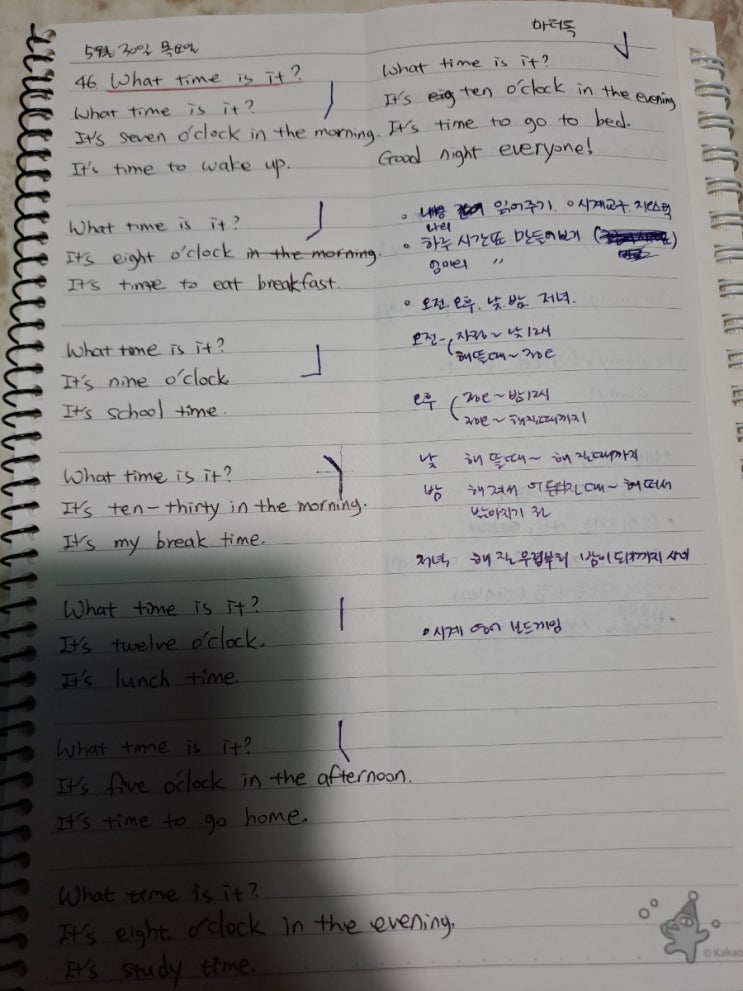 5월 30일 목요일
46. What time is it?
What time is it?
It's seven o'clock in the morning.
It's time to wake up.
What time is it?
It's eight o'clock in the morning.
It's time to eat breakfast.
What time is it?
It's nine o'clock
It's school time.
What time is it?
It's ten-thirty in the morning.
It's my break time.
What time is it?
It's twelve o'clock.
It's lunch time.
What time is it?
It's five o'clock in the afternoon.
It's time to go home.
What time is it?
It's eight o'clock in the evening.
It's study time.
마더톡
What time is it?
It's eig ten o'clock in the evening
It's time to go to bed.
Good night everyone!
읽어주기. 시계교구.
나의
하는 시간표 만들어보기
엄마의 〃
오전. 오후. 낮. 밤. 저녁.
오전 - 자정~낮12시
해뜰때~정오
오후 정오~밤12시
정오~해질때까지
낮 해 뜰때~해 질때까지
밤 해 져서 어두워진 때~해 떠서
밝아지기 전
저녁 해 질 무렵부터 밤이 되기까지 사이
시계 영어 보드게임
© Kakao